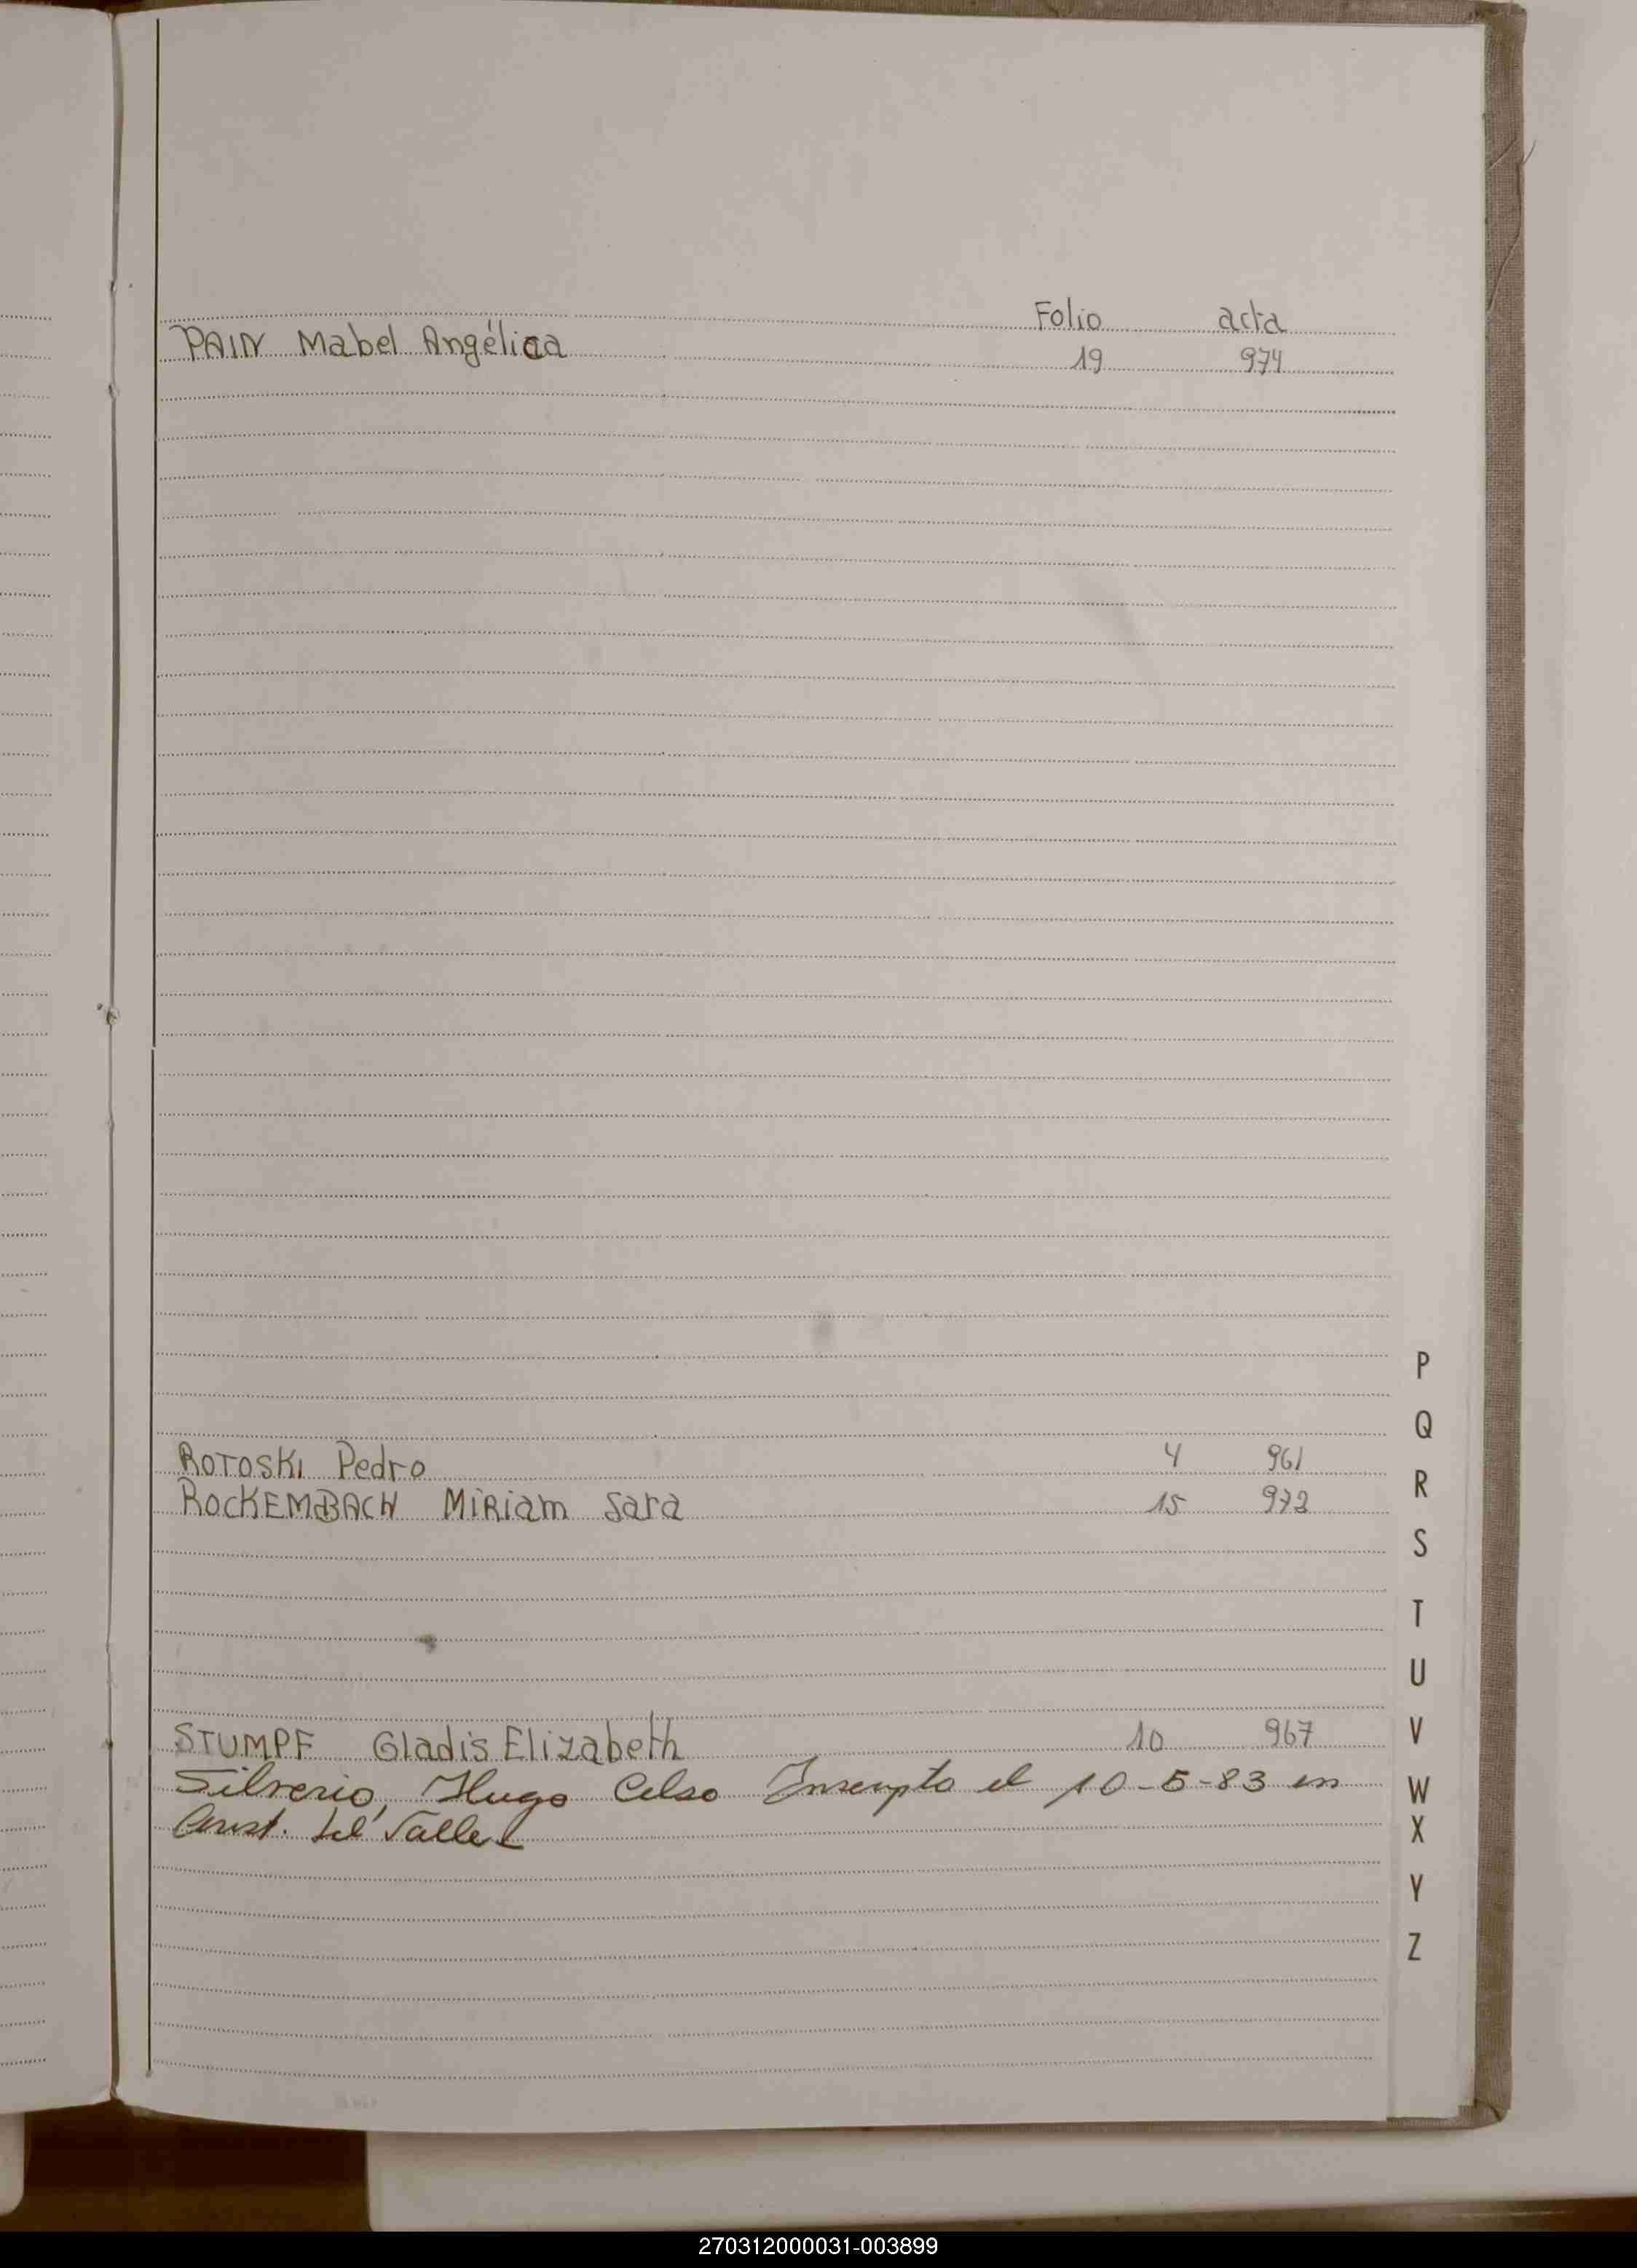 Folio acta
PAIN Mabel Angélica 19 974
P
Q
ROTOSKI Pedro 4 961
R
ROCKEMBACH MiRiam Sara 15 972
S
T
U
STUMPF Gladis Elizabeth 10 967
V
Silverio, Hugo Celso Inscripto el 10-5-83 en
W
Arist. del Valle
X
Y
Z
270312000031-003899